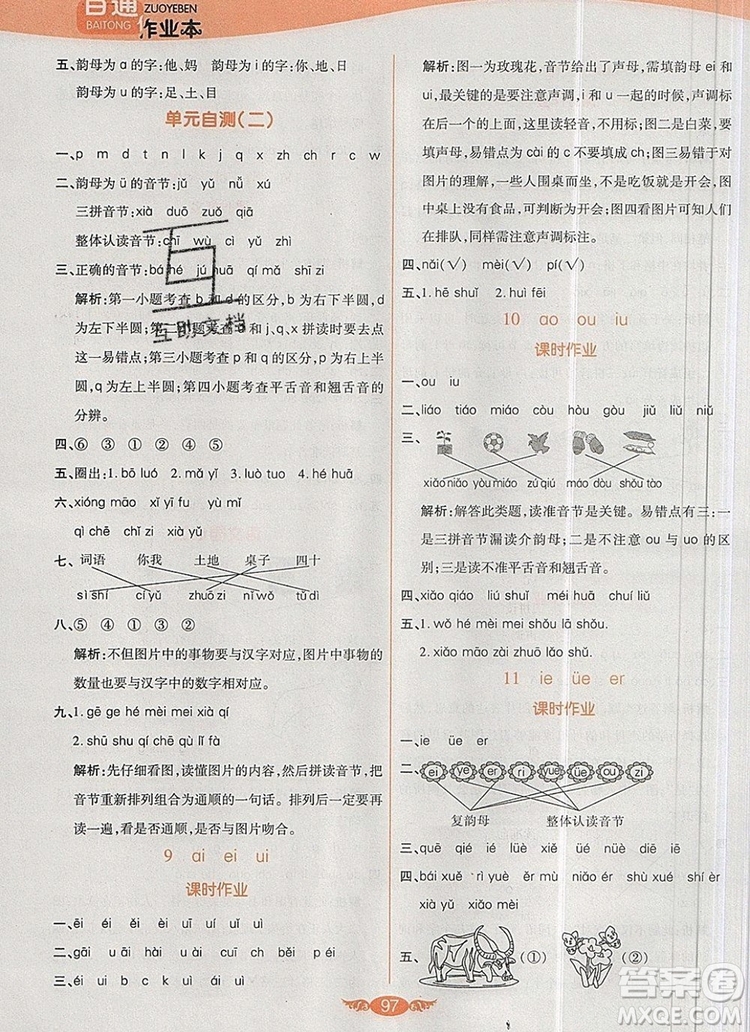 百通
BAITONG
ZUOYEBEN
作业本
五、韵母为 a 的字:他、妈 韵母为 i 的字:你、地、日
韵母为 u 的字:足、土、目
单元自测(二)
一、p m d t n l f k r c w
二、韵母为 ü 的音节:jǔ yǔ nǚ xǔ qù
三拼音节:xià duō zuǒ qiā
整体认读音节:chī wù cì yǔ zhì
三、正确的音节:bá hé jú huā qí mǎ shī zi
解析:第一小题考查 b 和 d 的区分,b 有右下半圆,
d 有左下半圆;第二小题考查 j 和 q 的拼读时要去点
这一易错点;第三小题考查 p 和 q 的区分,p 有右上
半圆,q 有左上半圆;第四小题考查平舌音和翘舌音的
分辨。
四、⑥ ③ ① ② ④ ⑤
五、圈出:1. bō luó 2. mǎ yǐ 3. luò tuo 4. hé huā
六、xióng māo xǐ yī fu yù mǐ
qì chē chǐ zi xià yǔ
七、词语 你我 土地 桌子 四十
sì shí cí yǔ zhuō zi nǐ wǒ tǔ dì
八、⑤ ④ ① ② ③
解析:不但图片中的事物要与汉字对应,图片中事物的
数量也要与汉字中的数字相对应。
九、1. gē ge hé mèi mei xià qí
2. shū shu qí chē qù lǐ fà
解析:先仔细看图,读懂图片的内容,然后拼读音节,把
音节重新排列组合为通顺的一句话。排列后一定要再
读一遍,看是否通顺,与图片吻合。
9 ai ei ui
课时作业
一、ēi éi ěi èi uī uí uǐ uì
二、gāi uái hái kāi cuī huì běi péi
三、ēi uì ài uì
解析:图一为玫瑰花,音节给出了声母,需填韵母 ei 和
ui,最关键的是要注意声调,i 和 u 一起的时候,声调标
在后面,子在这里读轻音,不用标;图二是白菜,要
填声母,易错点为 cài 的 c 不要填成 ch;图三易错于对
图片的理解,一些人围桌而坐,不是吃饭就是开会,图
中桌上没有食品,可判断为开会;图四看图片可知人们
在排队,同样需注意声调标注。
四、nǎi(√) mèi(√) pí(√)
五、1. hē shuǐ 2. huì fēi
10 ao ou iu
课时作业
一、ou iu
二、liáo tiáo miáo còu hòu gòu jiǔ liǔ niǔ
三、
xiǎo niǎo yòu miáo zú qiú máo dòu shǒu tào
解析:解答此类题,读准音节是关键。易错点有三:一
是三拼音节漏读介韵母;二是不注意区分 ou 与 uo 的
区别;三是读不准平舌音与翘舌音。
四、xiǎo qiáo liú shuǐ méi huā cuì liǔ
五、1. wǒ hé mèi mei shǒu lā shǒu.
2. xiǎo māo zài zhuō xià shuì jiào.
11 ie üe er
课时作业
一、ie üe er
二、ei ye er ri yue ou zi
复韵母 整体认读音节
三、quē qié lüè jué niè nüè duī diē iē
四、bái xuě yì diǎn ěr mù niǎo xié xià xuě shí èr
xià yǔ xiǎo māo
五、(①) (②)
97
互助文档
答案圈
MXQE.COM